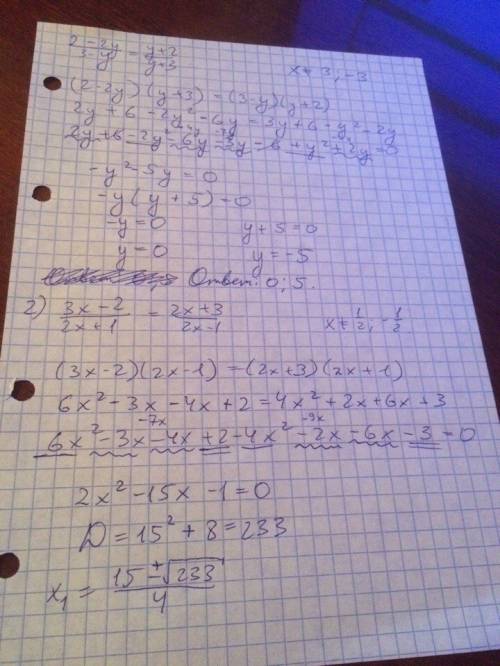 (2-2y)/(3-y) = (y+2)/(y+3)    x ≠ 3; -3
(2-2y)(y+3) = (3-y)(y+2)
2y + 6 - 2y² - 6y = 3y + 6 - y² - 2y
2y + 6 - 2y² - 6y - 3y - 6 + y² + 2y = 0
-y² - 5y = 0
-y(y+5) = 0
-y = 0    y + 5 = 0
y = 0    y = -5
Ответ: 0; 5.
2) (3x-2)/(2x+1) = (2x+3)/(2x-1)    x ≠ 1/2; -1/2
(3x-2)(2x-1) = (2x+3)(2x+1)
6x² - 3x - 4x + 2 = 4x² + 2x + 6x + 3
-7x    -9x
6x² - 3x - 4x + 2 - 4x² - 2x - 6x - 3 = 0
2x² - 15x - 1 = 0
D = 15² + 8 = 233
x₁ = (15 ± √233)/4